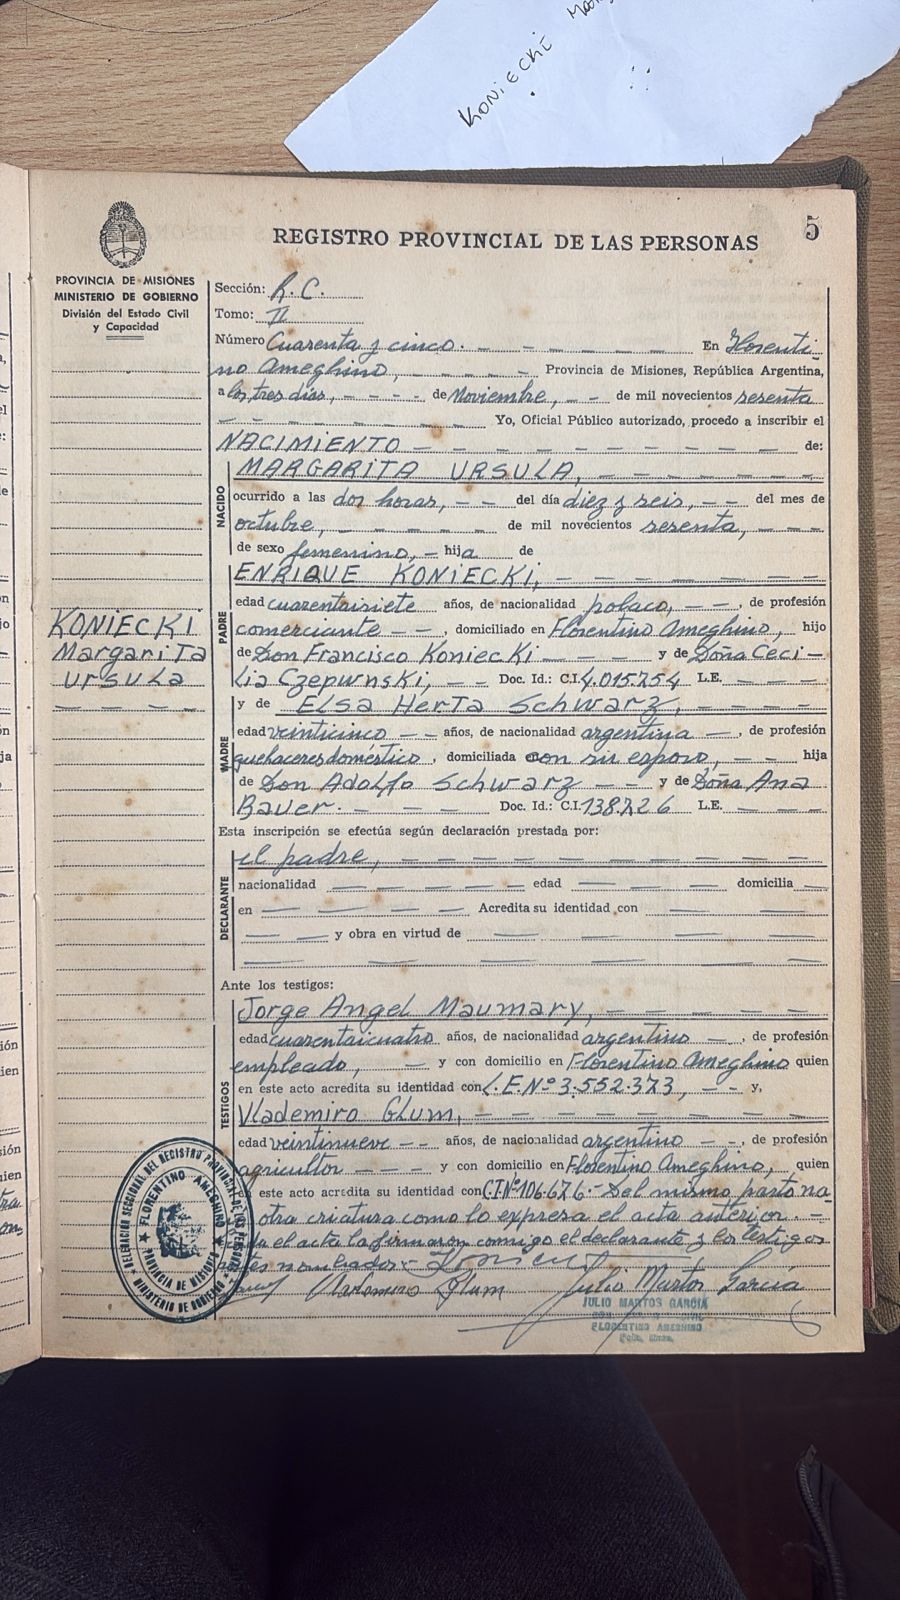 KONIECKI
5
REGISTRO PROVINCIAL DE LAS PERSONAS
PROVINCIA DE MISIONES
MINISTERIO DE GOBIERNO
División del Estado Civil
y Capacidad
KONIECKI
Margarita
Ursula
Sección: R.C.
Tomo: II
Número Cuarenta y cinco. En Florenti
no Ameghino, Provincia de Misiones, República Argentina,
a los tres días, de Noviembre, de mil novecientos sesenta
Yo, Oficial Público autorizado, procedo a inscribir el
NACIMIENTO de:
NACIDO
MARGARITA URSULA,
ocurrido a las dos horas, del día diez y seis, del mes de
octubre, de mil novecientos sesenta,
de sexo femenino, hija de
PADRE
ENRIQUE KONIECKI,
edad cuarentaisiete años, de nacionalidad polaco, de profesión
comerciante, domiciliado en Florentino Ameghino, hijo
de Don Francisco Koniecki y de Doña Ceci-
lia Czepwnski, Doc. Id.: C.I. 4.015.754 L.E.
MADRE
y de Elsa Herta Schwarz,
edad veinticinco años, de nacionalidad argentina, de profesión
quehaceres doméstico, domiciliada con su esposo, hija
de Don Adolfo Schwarz y de Doña Ana
Bauer. Doc. Id.: C.I. 138.726 L.E.
Esta inscripción se efectúa según declaración prestada por:
DECLARANTE
el padre,
nacionalidad edad domicilia
en Acredita su identidad con
y obra en virtud de
Ante los testigos:
TESTIGOS
Jorge Angel Maumary,
edad cuarentaicuatro años, de nacionalidad argentino, de profesión
empleado, y con domicilio en Florentino Ameghino quien
en este acto acredita su identidad con L.E.Nº 3.552.373, y,
Vlademiro Glum,
edad veintinueve años, de nacionalidad argentino, de profesión
agricultor y con domicilio en Florentino Ameghino, quien
este acto acredita su identidad con C.I.Nº 106.676.- Del mismo parto na
otra criatura como lo expresa el acta anterior.-
el acta la firmaron conmigo el declarante y los testigos
nombrados.-
Vlademiro Glum Julio Martos García
JULIO MARTOS GARCIA
FLORENTINO AMEGHINO
DELEGACION SECCIONAL DEL REGISTRO PROVINCIAL DE LAS PERSONAS
FLORENTINO AMEGHINO
PROVINCIA DE MISIONES
MINISTERIO DE GOBIERNO